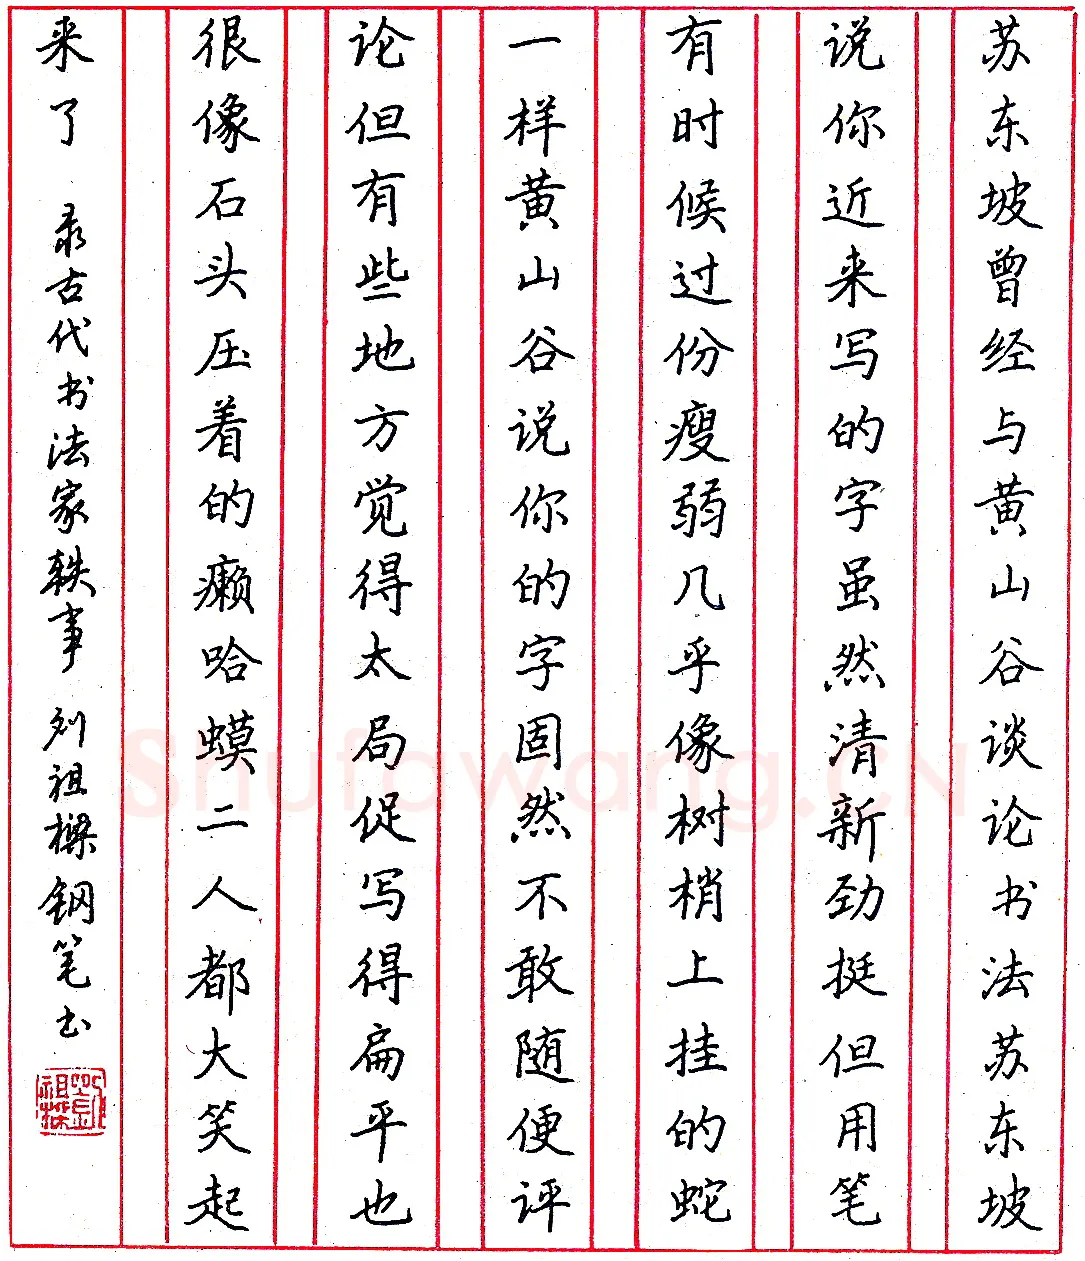 苏东坡曾经与黄山谷谈论书法苏东坡
说你近来写的字虽然清新劲挺但用笔
有时候过份瘦弱几乎像树梢上挂的蛇
一样黄山谷说你的字固然不敢随便评
论但有些地方觉得太局促写得扁平也
很像石头压着的癞哈蟆二人都大笑起
来了 录古代书法家轶事 刘祖樑钢笔书
Shufawang.CN